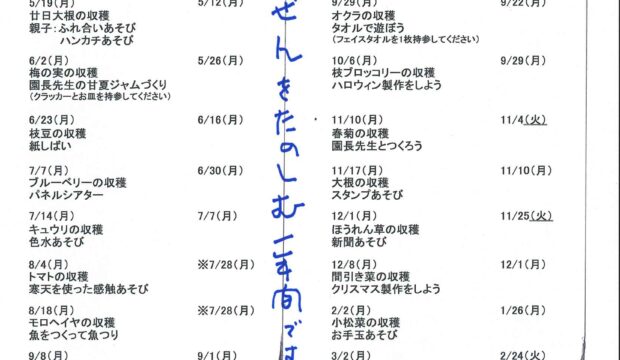 5/19(月) 5/12(月)
廿日大根の収穫
親子:ふれ合いあそび
ハンカチあそび
6/2(月) 5/26(月)
梅の実の収穫
園長先生の甘夏ジャムづくり
(クラッカーとお皿を持参してください)
6/23(月) 6/16(月)
枝豆の収穫
紙しばい
7/7(月) 6/30(月)
ブルーベリーの収穫
パネルシアター
7/14(月) 7/7(月)
キュウリの収穫
色水あそび
8/4(月) ※7/28(月)
トマトの収穫
寒天を使った感触あそび
8/18(月) ※7/28(月)
モロヘイヤの収穫
魚をつくって魚つり
9/8(月) 9/1(月)
ぜんきたのしむ
です
9/29(月) 9/22(月)
オクラの収穫
タオルで遊ぼう
(フェイスタオルを1枚持参してください)
10/6(月) 9/29(月)
枝ブロッコリーの収穫
ハロウィン製作をしよう
11/10(月) 11/4(火)
春菊の収穫
園長先生とつくろう
11/17(月) 11/10(月)
大根の収穫
スタンプあそび
12/1(月) 11/25(火)
ほうれん草の収穫
新聞あそび
12/8(月) 12/1(月)
間引き菜の収穫
クリスマス製作をしよう
2/2(月) 1/26(月)
小松菜の収穫
お手玉あそび
3/2(月) 2/24(火)